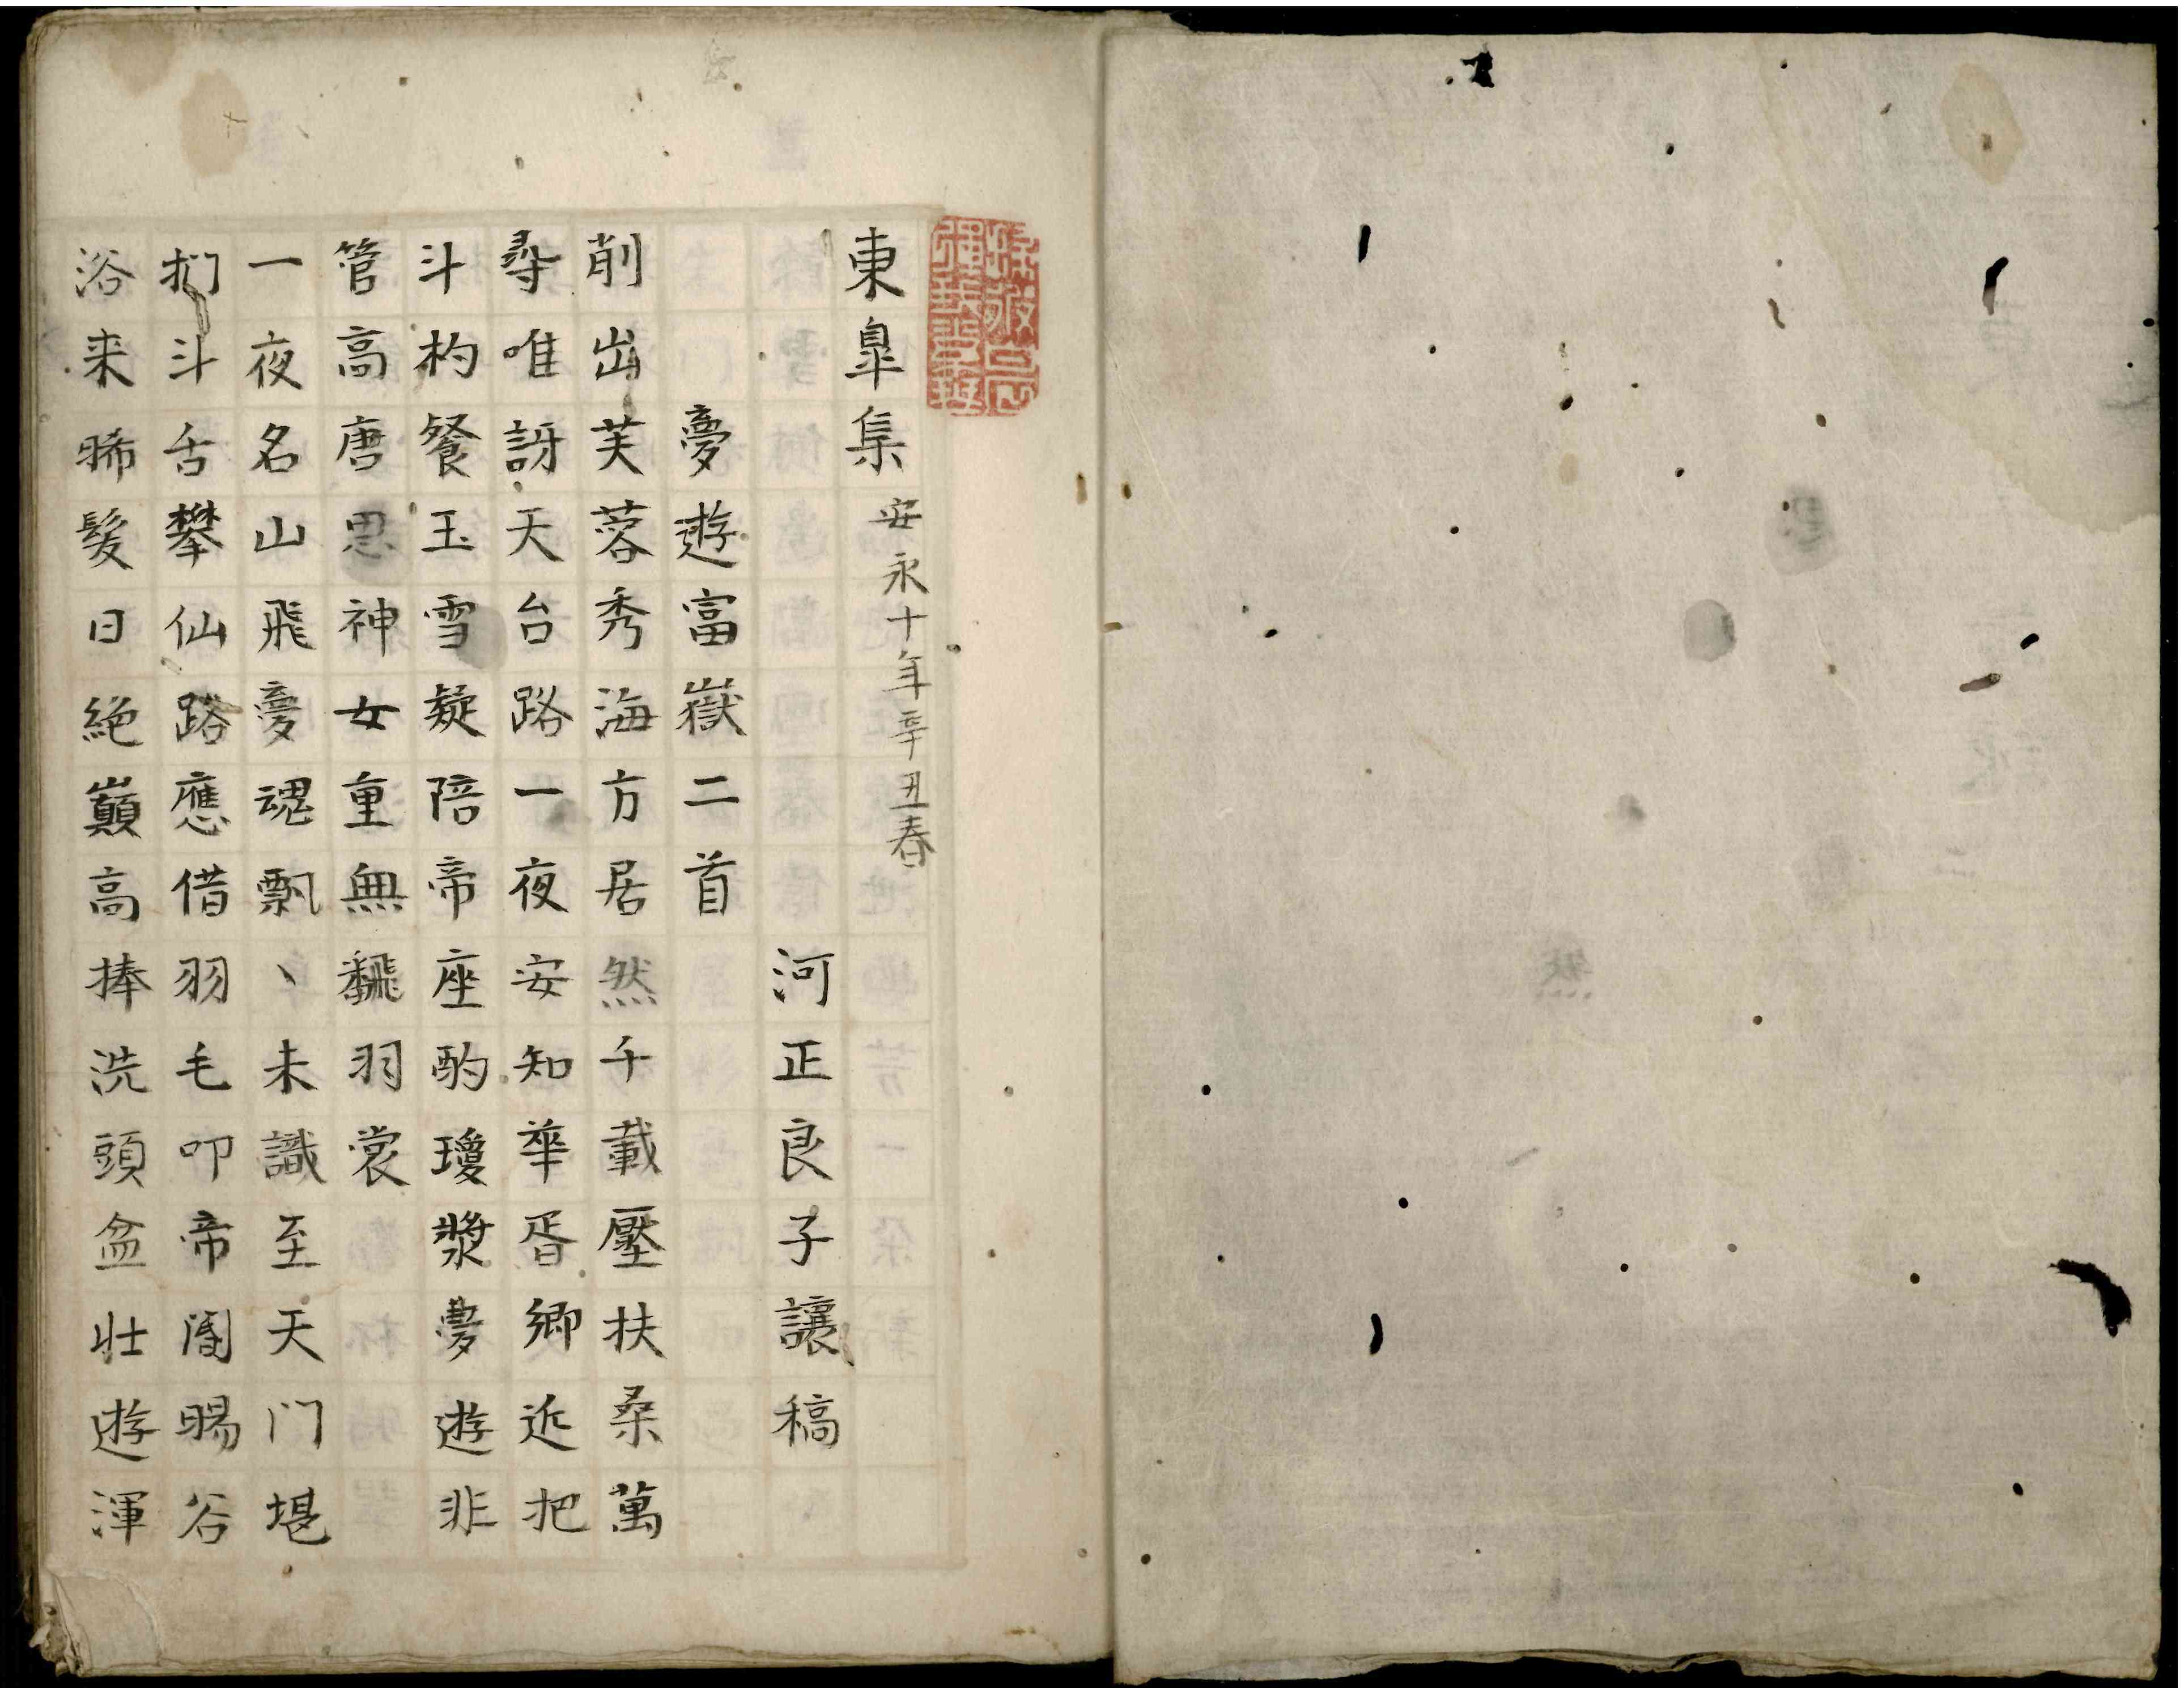 東皐集 安永十年辛丑春
河正良子讓稿
夢遊富嶽二首
削出芙蓉秀海方居然千載壓扶桑萬
尋唯訝天台路一夜安知華胥鄉近把
斗杓餐玉雪疑陪帝座酌瓊漿夢遊非
管高唐思神女重無飜羽裳
一夜名山飛夢魂飄〻未識至天门堪
捫斗舌攀仙路應借羽毛叩帝閽暘谷
浴来晞髮日絶巓高捧洗頭盆壮遊渾